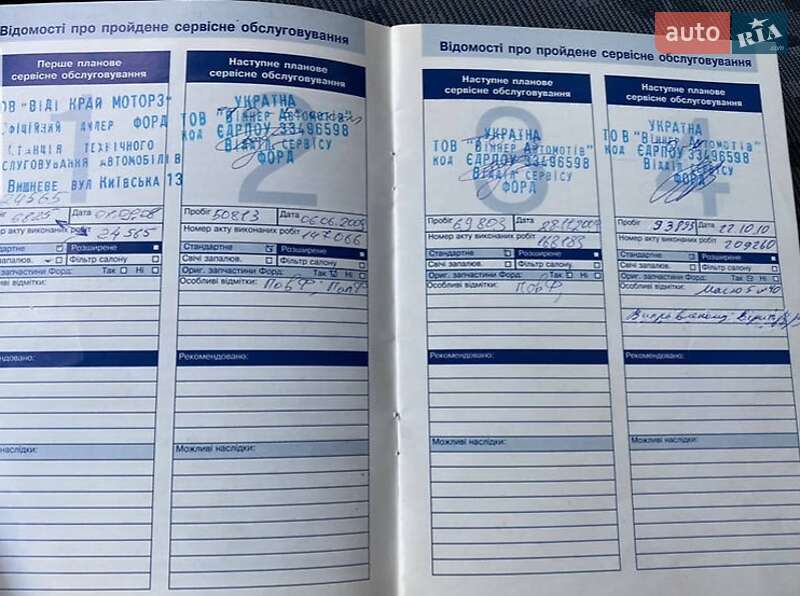 auto RIA .com
Відомості про пройдене сервісне обслуговування
Перше планове
сервісне обслуговування
1
ТОВ "ВІДІ КРАЙ МОТОРЗ"
ОФІЦІЙНИЙ ДИЛЕР ФОРД
СТАНЦІЯ ТЕХНІЧНОГО
ОБСЛУГОВУВАННЯ АВТОМОБІЛІВ
ВИШНЕВЕ ВУЛ КИЇВСЬКА 13
24565
Дата
акту виконаних робіт 24565
Стандартне Розширене
запалюв. Фільтр салону
запчастини Форд: Так Ні
відмітки:
Рекомендовано:
наслідки:
Наступне планове
сервісне обслуговування
2
УКРАЇНА
ТОВ "ВІННЕР АВТОМОТІВ"
КОД ЄДРПОУ 33496598
ВІДДІЛ СЕРВІСУ
ФОРД
Пробіг 50813 Дата 06.06.2009
Номер акту виконаних робіт 147066
Стандартне Розширене
Свічі запалюв. Фільтр салону
Ориг. запчастини Форд: Так Ні
Особливі відмітки:
Рекомендовано:
Можливі наслідки:
Відомості про пройдене сервісне обслуговування
Наступне планове
сервісне обслуговування
3
УКРАЇНА
ТОВ "ВІННЕР АВТОМОТІВ"
КОД ЄДРПОУ 33496598
ВІДДІЛ СЕРВІСУ
ФОРД
Пробіг 69803 Дата 28.11.2009
Номер акту виконаних робіт 168183
Стандартне Розширене
Свічі запалюв. Фільтр салону
Ориг. запчастини Форд: Так Ні
Особливі відмітки:
Рекомендовано:
Можливі наслідки:
Наступне планове
сервісне обслуговування
4
УКРАЇНА
ТОВ "ВІННЕР АВТОМОТІВ"
КОД ЄДРПОУ 33496598
ВІДДІЛ СЕРВІСУ
ФОРД
Пробіг 93895 Дата 22.10.10
Номер акту виконаних робіт 209260
Стандартне Розширене
Свічі запалюв. Фільтр салону
Ориг. запчастини Форд: Так Ні
Особливі відмітки: Масло 5w40
Рекомендовано:
Можливі наслідки: